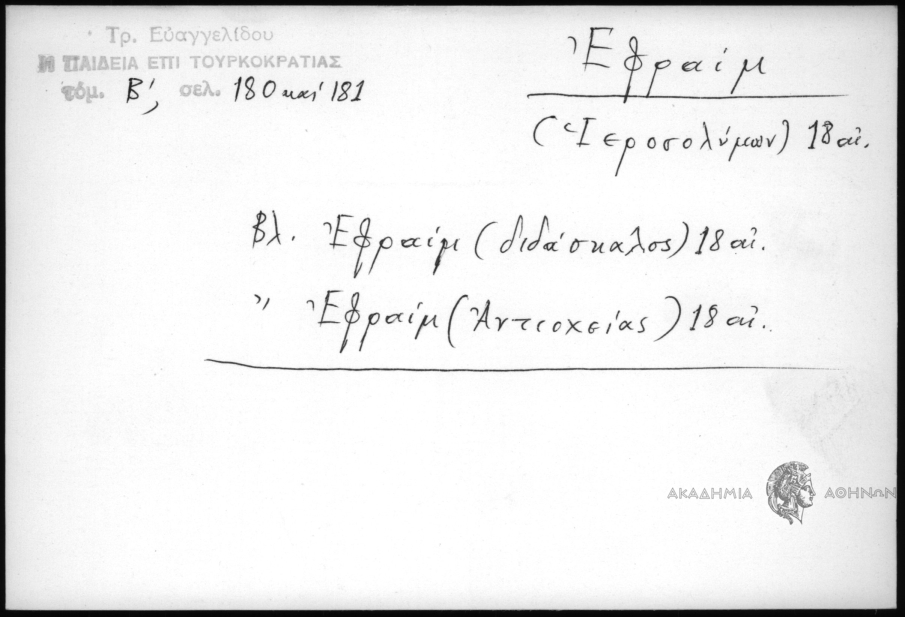 Τρ. Εὐαγγελίδου
Η ΠΑΙΔΕΙΑ ΕΠΙ ΤΟΥΡΚΟΚΡΑΤΙΑΣ
τόμ. Β', σελ. 180 καί 181
Ἐφραίμ
(Ἱεροσολύμων) 18 αἰ.
Βλ. Ἐφραίμ (διδάσκαλος) 18 αἰ.
" Ἐφραίμ (Ἀντιοχείας) 18 αἰ.
ΑΚΑΔΗΜΙΑ ΑΘΗΝΩΝ